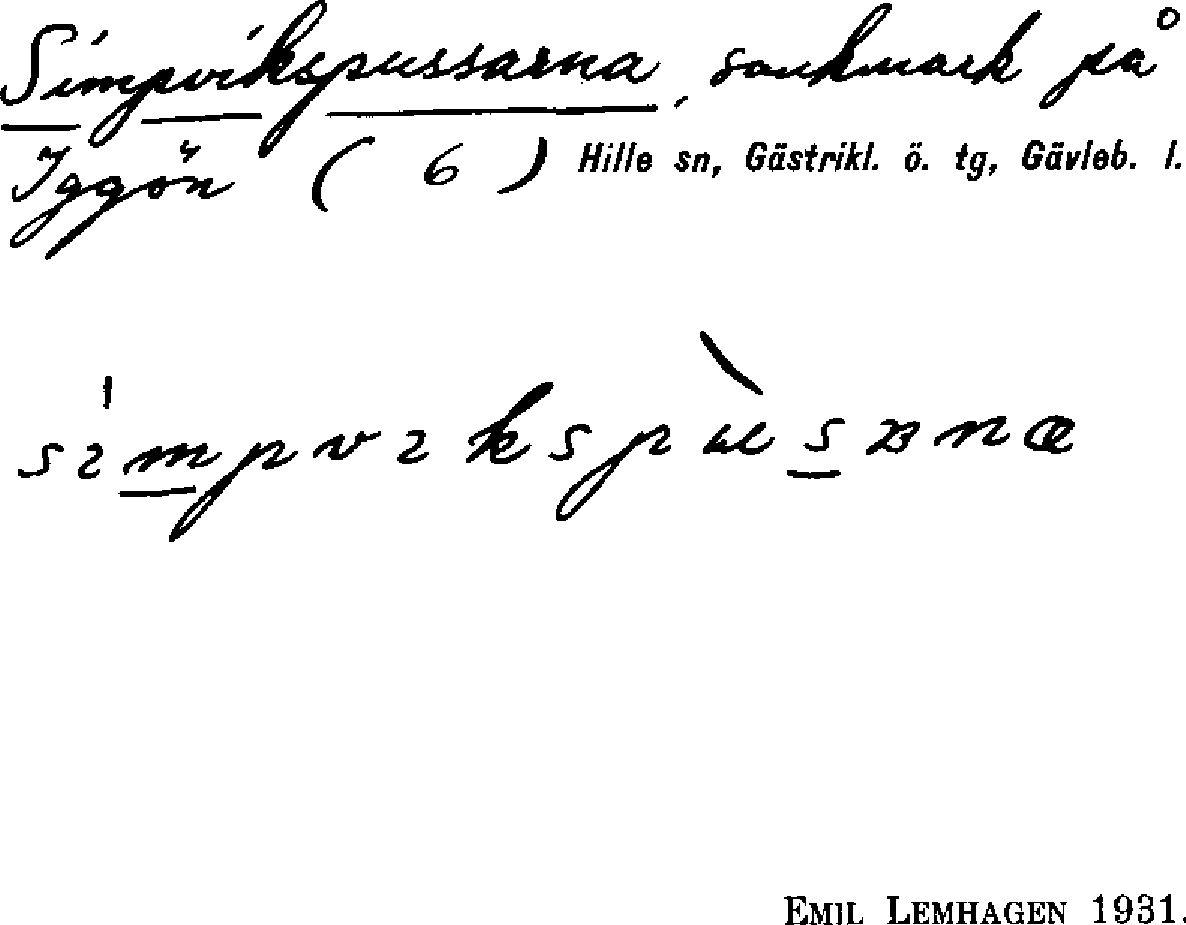 Simpvikspussarna, sankmark på
Iggön ( 6 ) Hille sn, Gästrikl. ö. tg, Gävleb. l.
EMIL LEMHAGEN 1931.